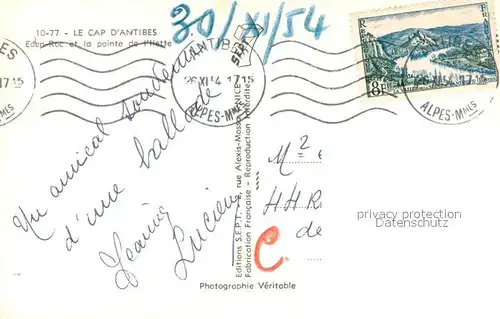 10-77 - LE CAP D'ANTIBES
Eden-Roc et la pointe de l'Ilette
30/XI/54
ANTIBES
26 XI 54 17 15
ALPES-Mmes
17 15
26 XI 54 17 15
ALPES-Mmes
8F
Un amical
d'une ballade
Jeanine
Lucien
Editions S.E.P.T., rue Alexis-Mossa, NICE
Édition Française - Reproduction Interdite
M
HHR
de
C.
privacy protection
Datenschutz
Photographie Véritable